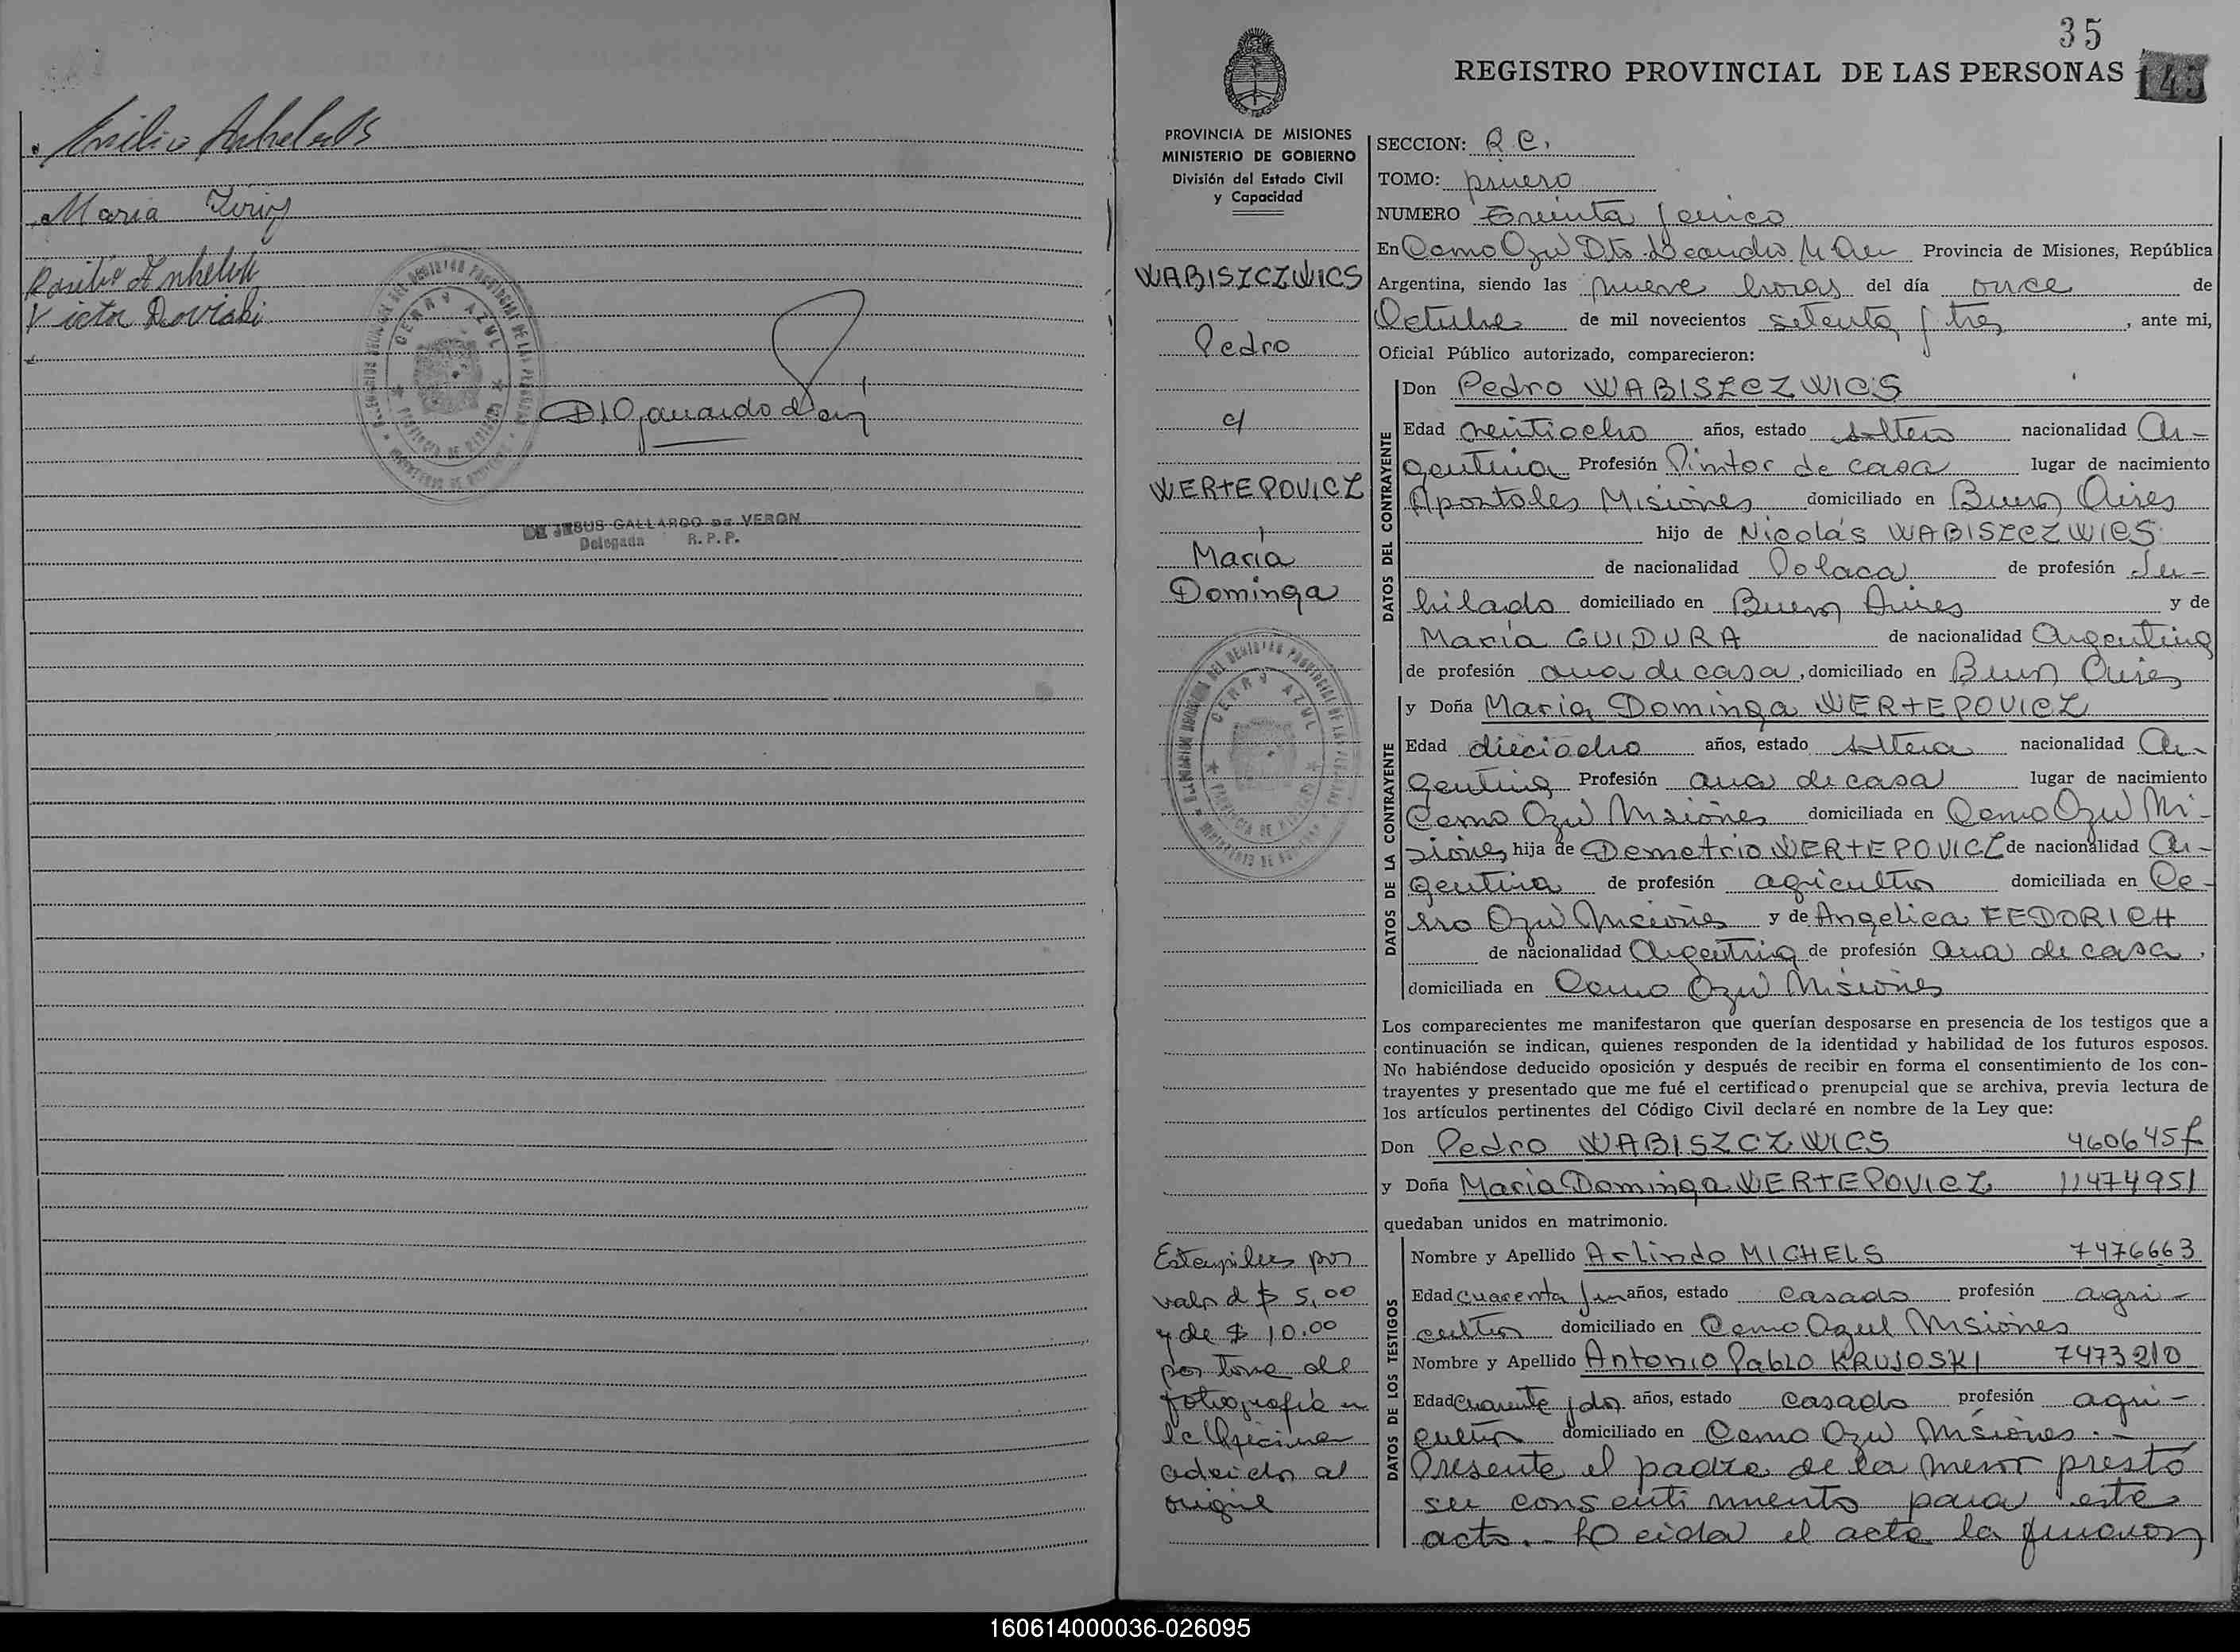 Emilio
Maria
Victor
CERRO AZUL
DE JESUS GALLARDO DE VERON
Delegada R. P. P.
35
REGISTRO PROVINCIAL DE LAS PERSONAS
145
PROVINCIA DE MISIONES
MINISTERIO DE GOBIERNO
División del Estado Civil
y Capacidad
WABISZCZWICS
Pedro
c/
WERTEPOVICZ
María
Dominga
CERRO AZUL
Estampillas por
valor d $ 5,00
y de $ 10.00
por toma de
fotografía en
la Oficina
al
SECCION: R.C.
TOMO: primero
NUMERO Treinta y cinco
En Cerro Azul Dto. Leandro N Alem Provincia de Misiones, República
Argentina, siendo las nueve horas del día once de
Octubre de mil novecientos setenta y tres, ante mi,
Oficial Público autorizado, comparecieron:
DATOS DEL CONTRAYENTE
Don Pedro WABISZCZWICS
Edad veintiocho años, estado soltero nacionalidad Ar-
gentina Profesión Pintor de casa lugar de nacimiento
Apostoles Misiones domiciliado en Buenos Aires
hijo de Nicolás WABISZCZWICS
de nacionalidad Polaca de profesión Ju-
bilado domiciliado en Buenos Aires y de
María GUIDURA de nacionalidad Argentina
de profesión ama de casa, domiciliado en Buenos Aires
DATOS DE LA CONTRAYENTE
y Doña María Dominga WERTEPOVICZ
Edad dieciocho años, estado soltera nacionalidad Ar-
gentina Profesión ama de casa lugar de nacimiento
Cerro Azul Misiones domiciliada en Cerro Azul Mi-
siones hija de Demetrio WERTEPOVICZ de nacionalidad Ar-
gentina de profesión agricultor domiciliada en Ce-
rro Azul Misiones y de Angelica FEDORICH
de nacionalidad Argentina de profesión ama de casa,
domiciliada en Cerro Azul Misiones
Los comparecientes me manifestaron que querían desposarse en presencia de los testigos que a
continuación se indican, quienes responden de la identidad y habilidad de los futuros esposos.
No habiéndose deducido oposición y después de recibir en forma el consentimiento de los con-
trayentes y presentado que me fué el certificado prenupcial que se archiva, previa lectura de
los artículos pertinentes del Código Civil declaré en nombre de la Ley que:
Don Pedro WABISZCZWICS
y Doña María Dominga WERTEPOVICZ 11474951
quedaban unidos en matrimonio.
DATOS DE LOS TESTIGOS
Nombre y Apellido Arlindo MICHELS 7476663
Edad cuarenta y un años, estado casado profesión agri-
cultor domiciliado en Cerro Azul Misiones
Nombre y Apellido Antonio Pablo KRUJOSKI 7473210
Edad Cuarenta y dos años, estado casado profesión agri-
cultor domiciliado en Cerro Azul Misiones.-
Presente el padre de la menor prestó
su consentimiento para este
acto.- Leida el acta la firmaron
160614000036-026095